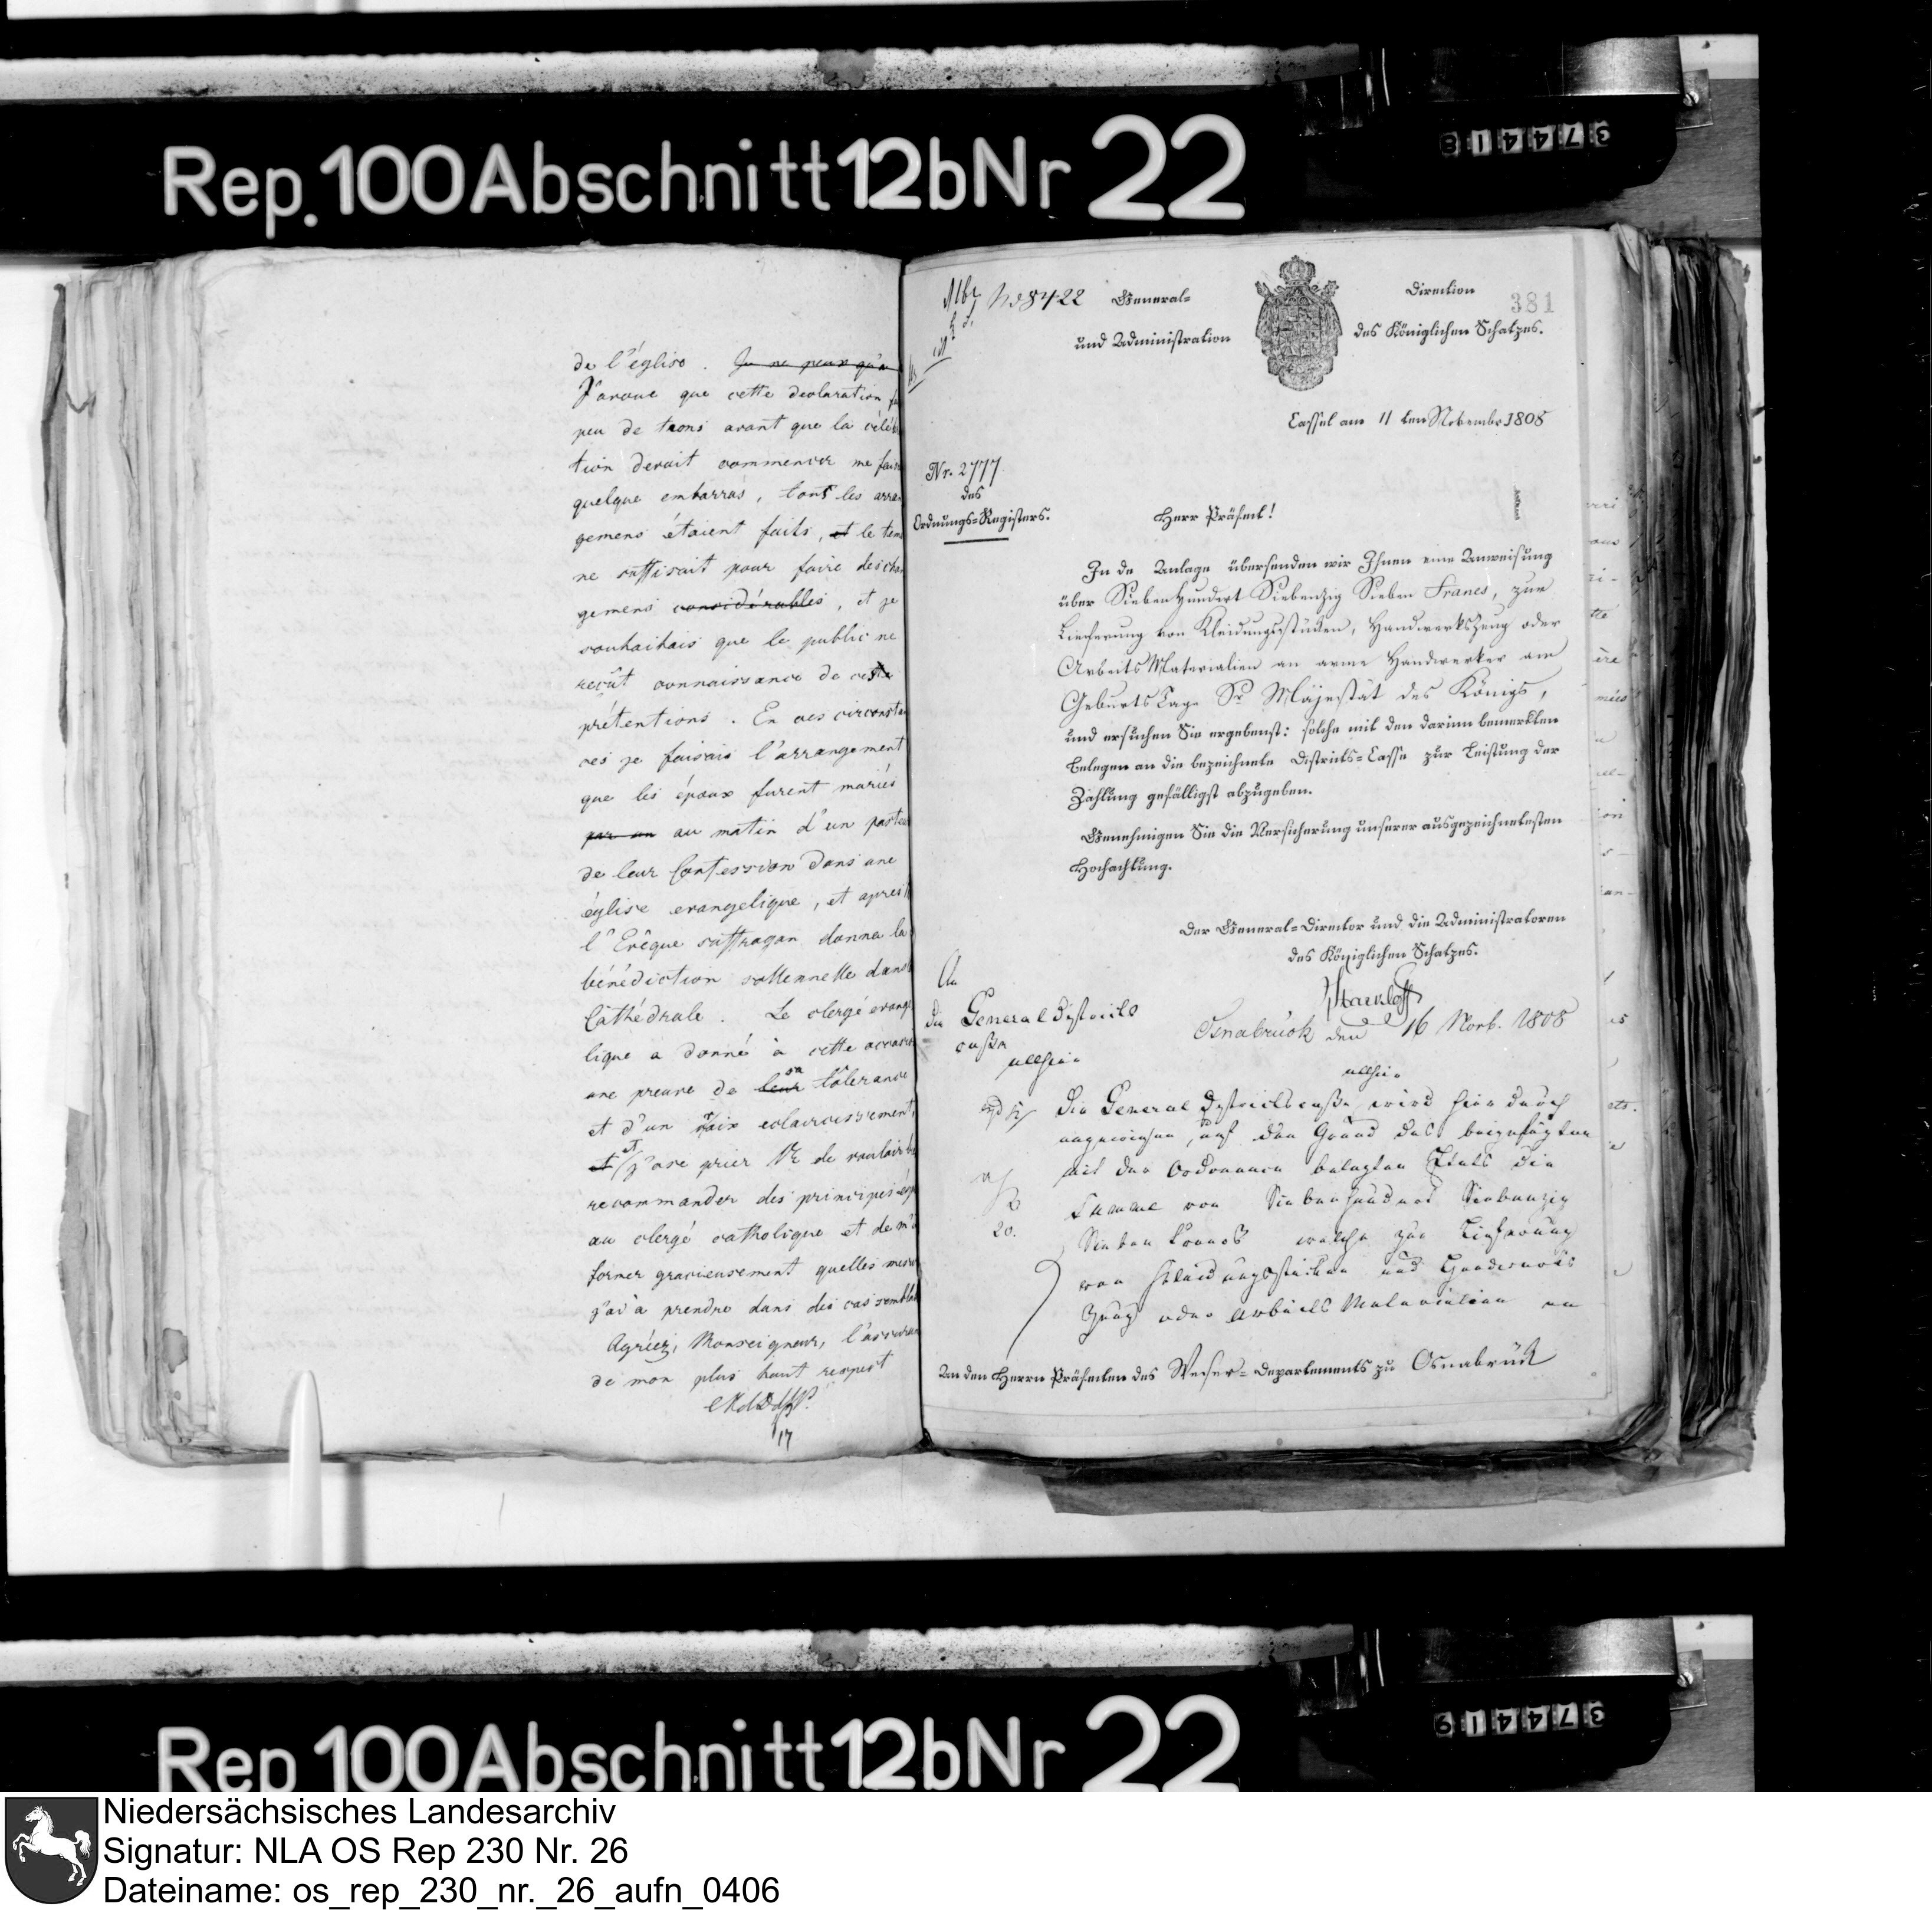 Rep. 100 Abschnitt 12b Nr 22
374418
de l'église. Je ne peux qu'a
J'avoue que cette declaration
peu de tems avant que la célé
tion devait commencer me fais
quelque embarras, tous les arra
gemens étaient faits, et le tem
ne suffisait pour faire des chan
gemens considérables, et je
souhaitais que le public ne
reçût connaissance de cette
prétentions. En ces circonstan
ces je faisais l'arrangement
que les époux furent mariés
par un au matin d'un pasteur
de leur Confession dans une
église evangelique, et après
l'Evêque suffragan donna la
bénédiction sollennelle dans
Cathédrale. Le clergé evangé
lique a donné à cette occasion
une preuve de leur sa tolerance
et d'un eclaircissement
et j'ose prier VE de vouloir
recommander des principes
au clergé catholique et de m'
former gracieusement quelles mesur
j'ai à prendre dans des cas semblab
Agréez, Monseigneur, l'assuran
de mon plus haut respect
17
No 8422
General=
Direction
381
und Administration
des Königlichen Schatzes.
Cassel am 11 ten November 1808
Nr. 2777
des
Ordnungs=Registers.
Herr Präfect!
In de Anlage übersenden wir Ihnen eine Anweisung
über Siebenhundert Siebenzig Sieben Francs, zur
Lieferung von Kleidungsstücken, Handwerkszeug oder
Arbeits Materialien an arme Handwerker am
Geburts Tage Sr Majestät des Königs,
und ersuchen Sie ergebenst: solche mit den darinn bemerkten
Belegen an die bezeichnete Districts=Casse zur Leistung der
Zahlung gefälligst abzugeben.
Genehmigen Sie die Versicherung unserer ausgezeichnetesten
Hochachtung.
Der General=Director und die Administratoren
des Königlichen Schatzes.
An
die General Districts
casse
allhier
Osnabrück den 16 Novb. 1808
allhier
Die General Districtscasse wird hierdurch
angewiesen, auf den Grund des beigefügten
mit der Ordonance belegten Etats die
Summe von Siebenhundert Siebenzig
Sieben Francs welche zur Lieferung
von Kleidungsstücken und Handwerks
Zeug oder Arbeits Materialien an
20.
An den Herrn Präfecten des Weser=Departements zu Osnabrück
Rep 100 Abschnitt 12b Nr 22
374419
Niedersächsisches Landesarchiv
Signatur: NLA OS Rep 230 Nr. 26
Dateiname: os_rep_230_nr._26_aufn_0406